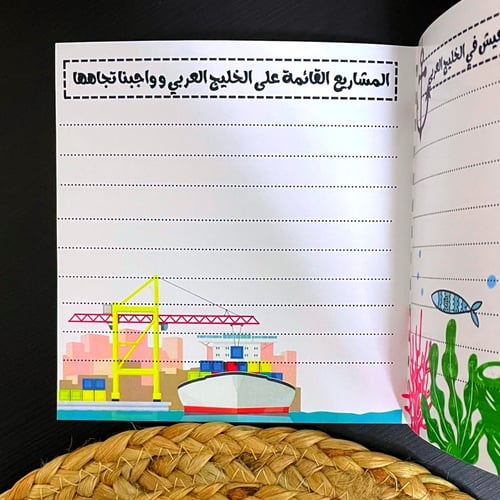 المشاريع القائمة على الخليج العربي وواجبنا تجاهها
يش في الخليج العربي